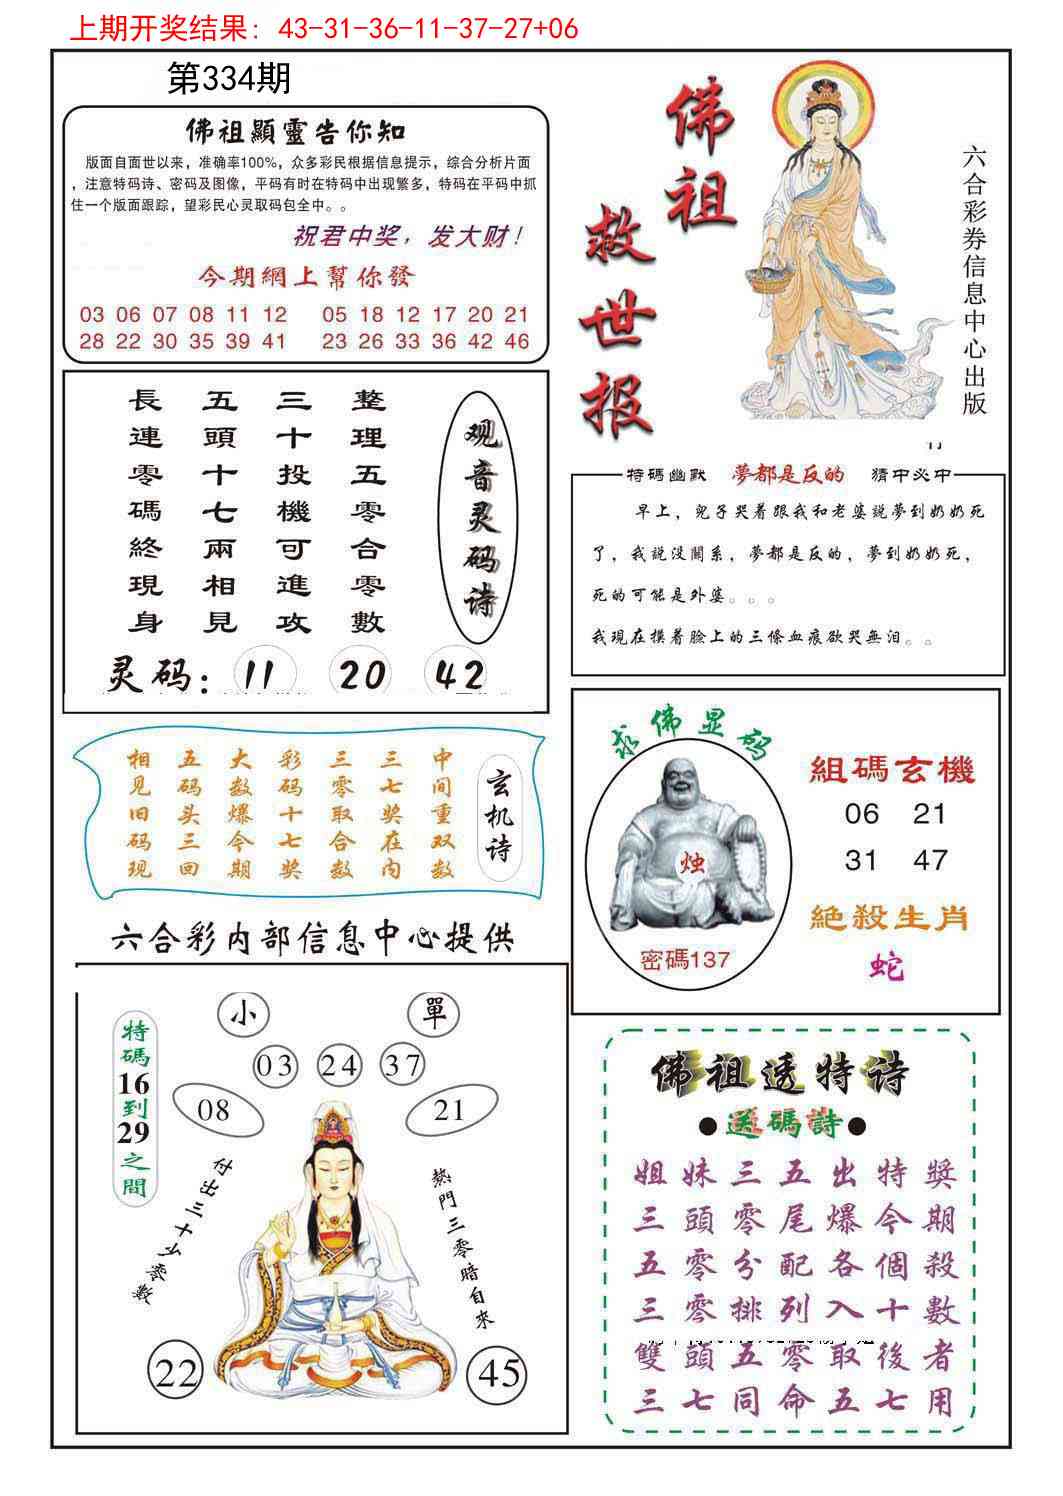 上期开奖结果: 43-31-36-11-37-27+06
第334期
佛祖顯靈告你知
版面自面世以来，准确率100%，众多彩民根据信息提示，综合分析片面
，注意特码诗、密码及图像，平码有时在特码中出现繁多，特码在平码中抓
住一个版面跟踪，望彩民心灵取码包全中。。
祝君中奖，发大财！
今期網上幫你發
03 06 07 08 11 12 05 18 12 17 20 21
28 22 30 35 39 41 23 26 33 36 42 46
佛祖
救世报
六合彩券信息中心出版
观音灵码诗
整理五零合零數
三十投機可進攻
五頭十七兩相見
長連零碼終現身
灵码：11 20 42
特碼幽默 夢都是反的 猜中必中
早上，兒子哭着跟我和老婆説夢到奶奶死
了，我説没關系，夢都是反的，夢到奶奶死，
死的可能是外婆。。。
我現在摸着臉上的三條血痕欲哭無泪。。
玄机诗
中间重双数
三七奖在内
三零取合数
彩码十七奖
大数爆今期
五码头三回
相见旧码现
求佛显码
烛
密碼137
組碼玄機
06 21
31 47
絶殺生肖
蛇
六合彩内部信息中心提供
特碼16到29之間
小 單
03 24 37
08 21
付出三十少零數
熱門三零暗自來
22 45
佛祖透特诗
●送碼詩●
姐妹三五出特獎
三頭零尾爆今期
五零分配各個殺
三零排列入十數
雙頭五零取後者
三七同命五七用